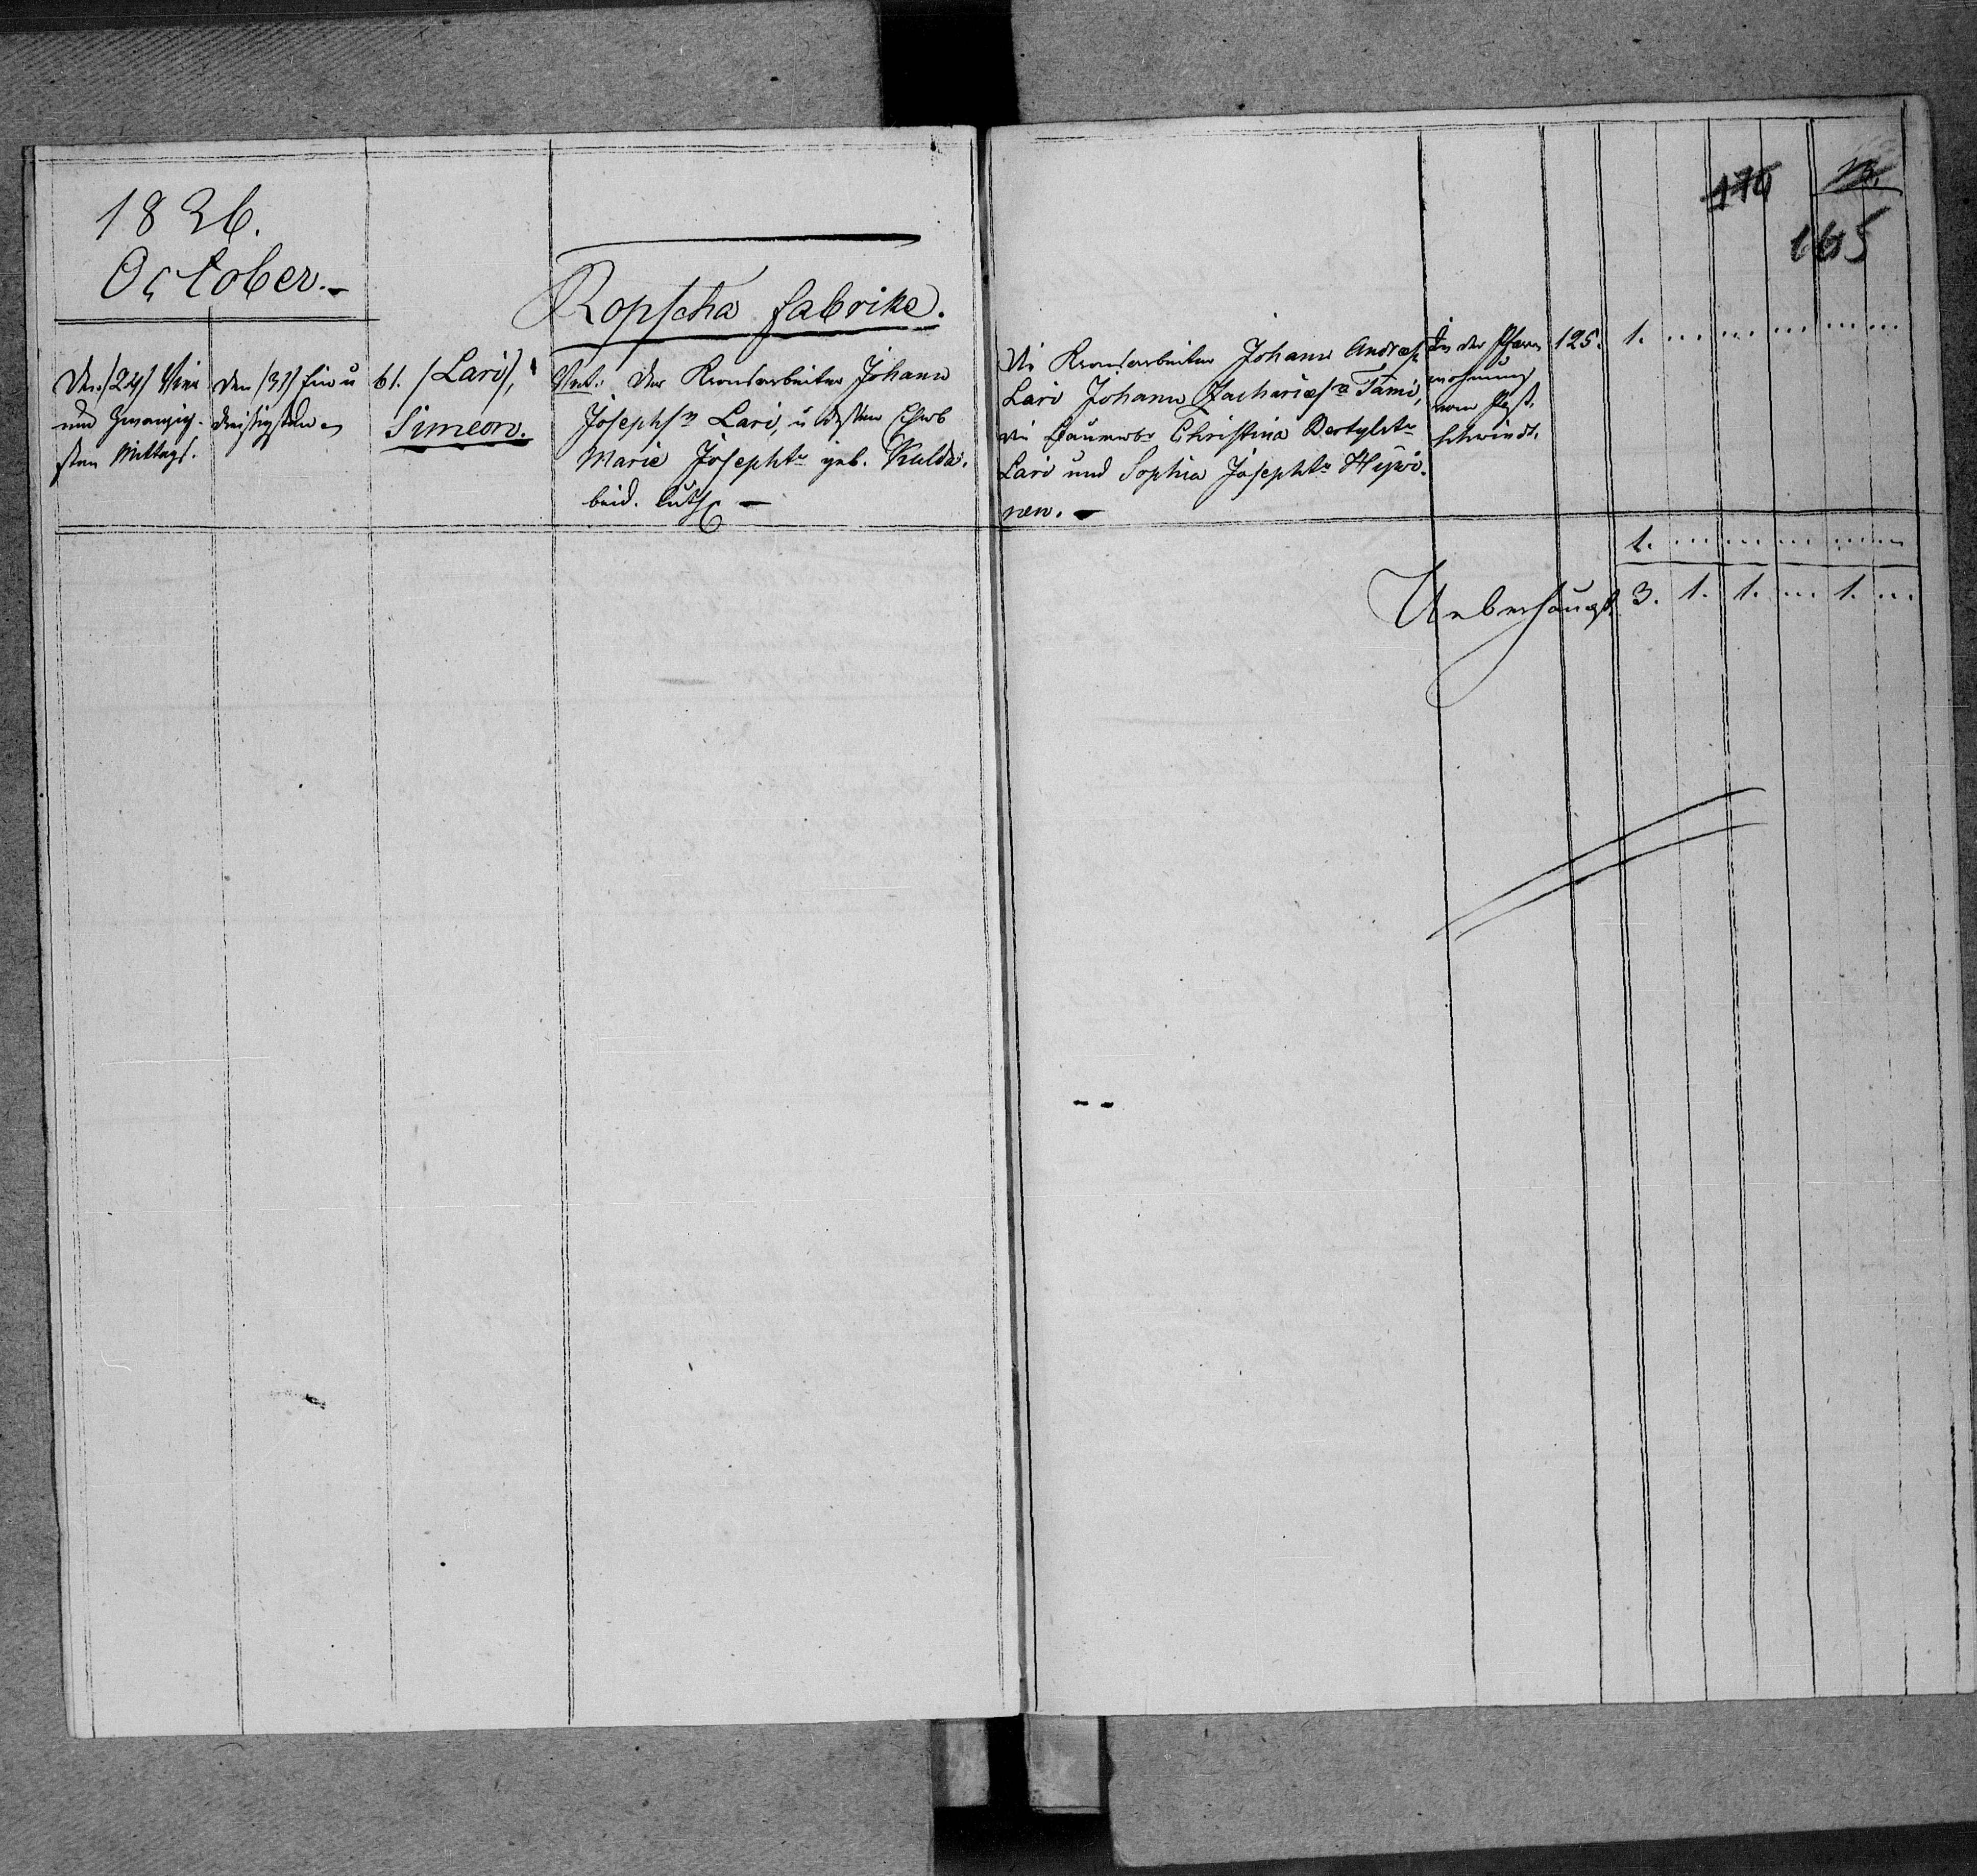 1826.
October.
Ropscha fabrike.
Den /24/ Vier
und Zwanzig-
sten Mittags.
Den /31/ Ein u
dreisigsten
61. /Lari/,
Simeon.
Vat: Der Kronsarbeiter Johann
Josephs Lari, u dessen Ehwb
Marie Josephts geb. Kulda.
beid. luth.
Die Kronsarbeiter Johann Andreas
Lari Johann Zacharias Tami,
die Bauerwbr Christina
Lari und Sophia Josephts
nen.
In der Pfarr
wohnung
vom Past.
Schwindt.
125.
1. ... ... ... ... ...
1. ... ... ... ... ...
Ueberhaupt 3. 1. 1. ... 1. ...
176
165